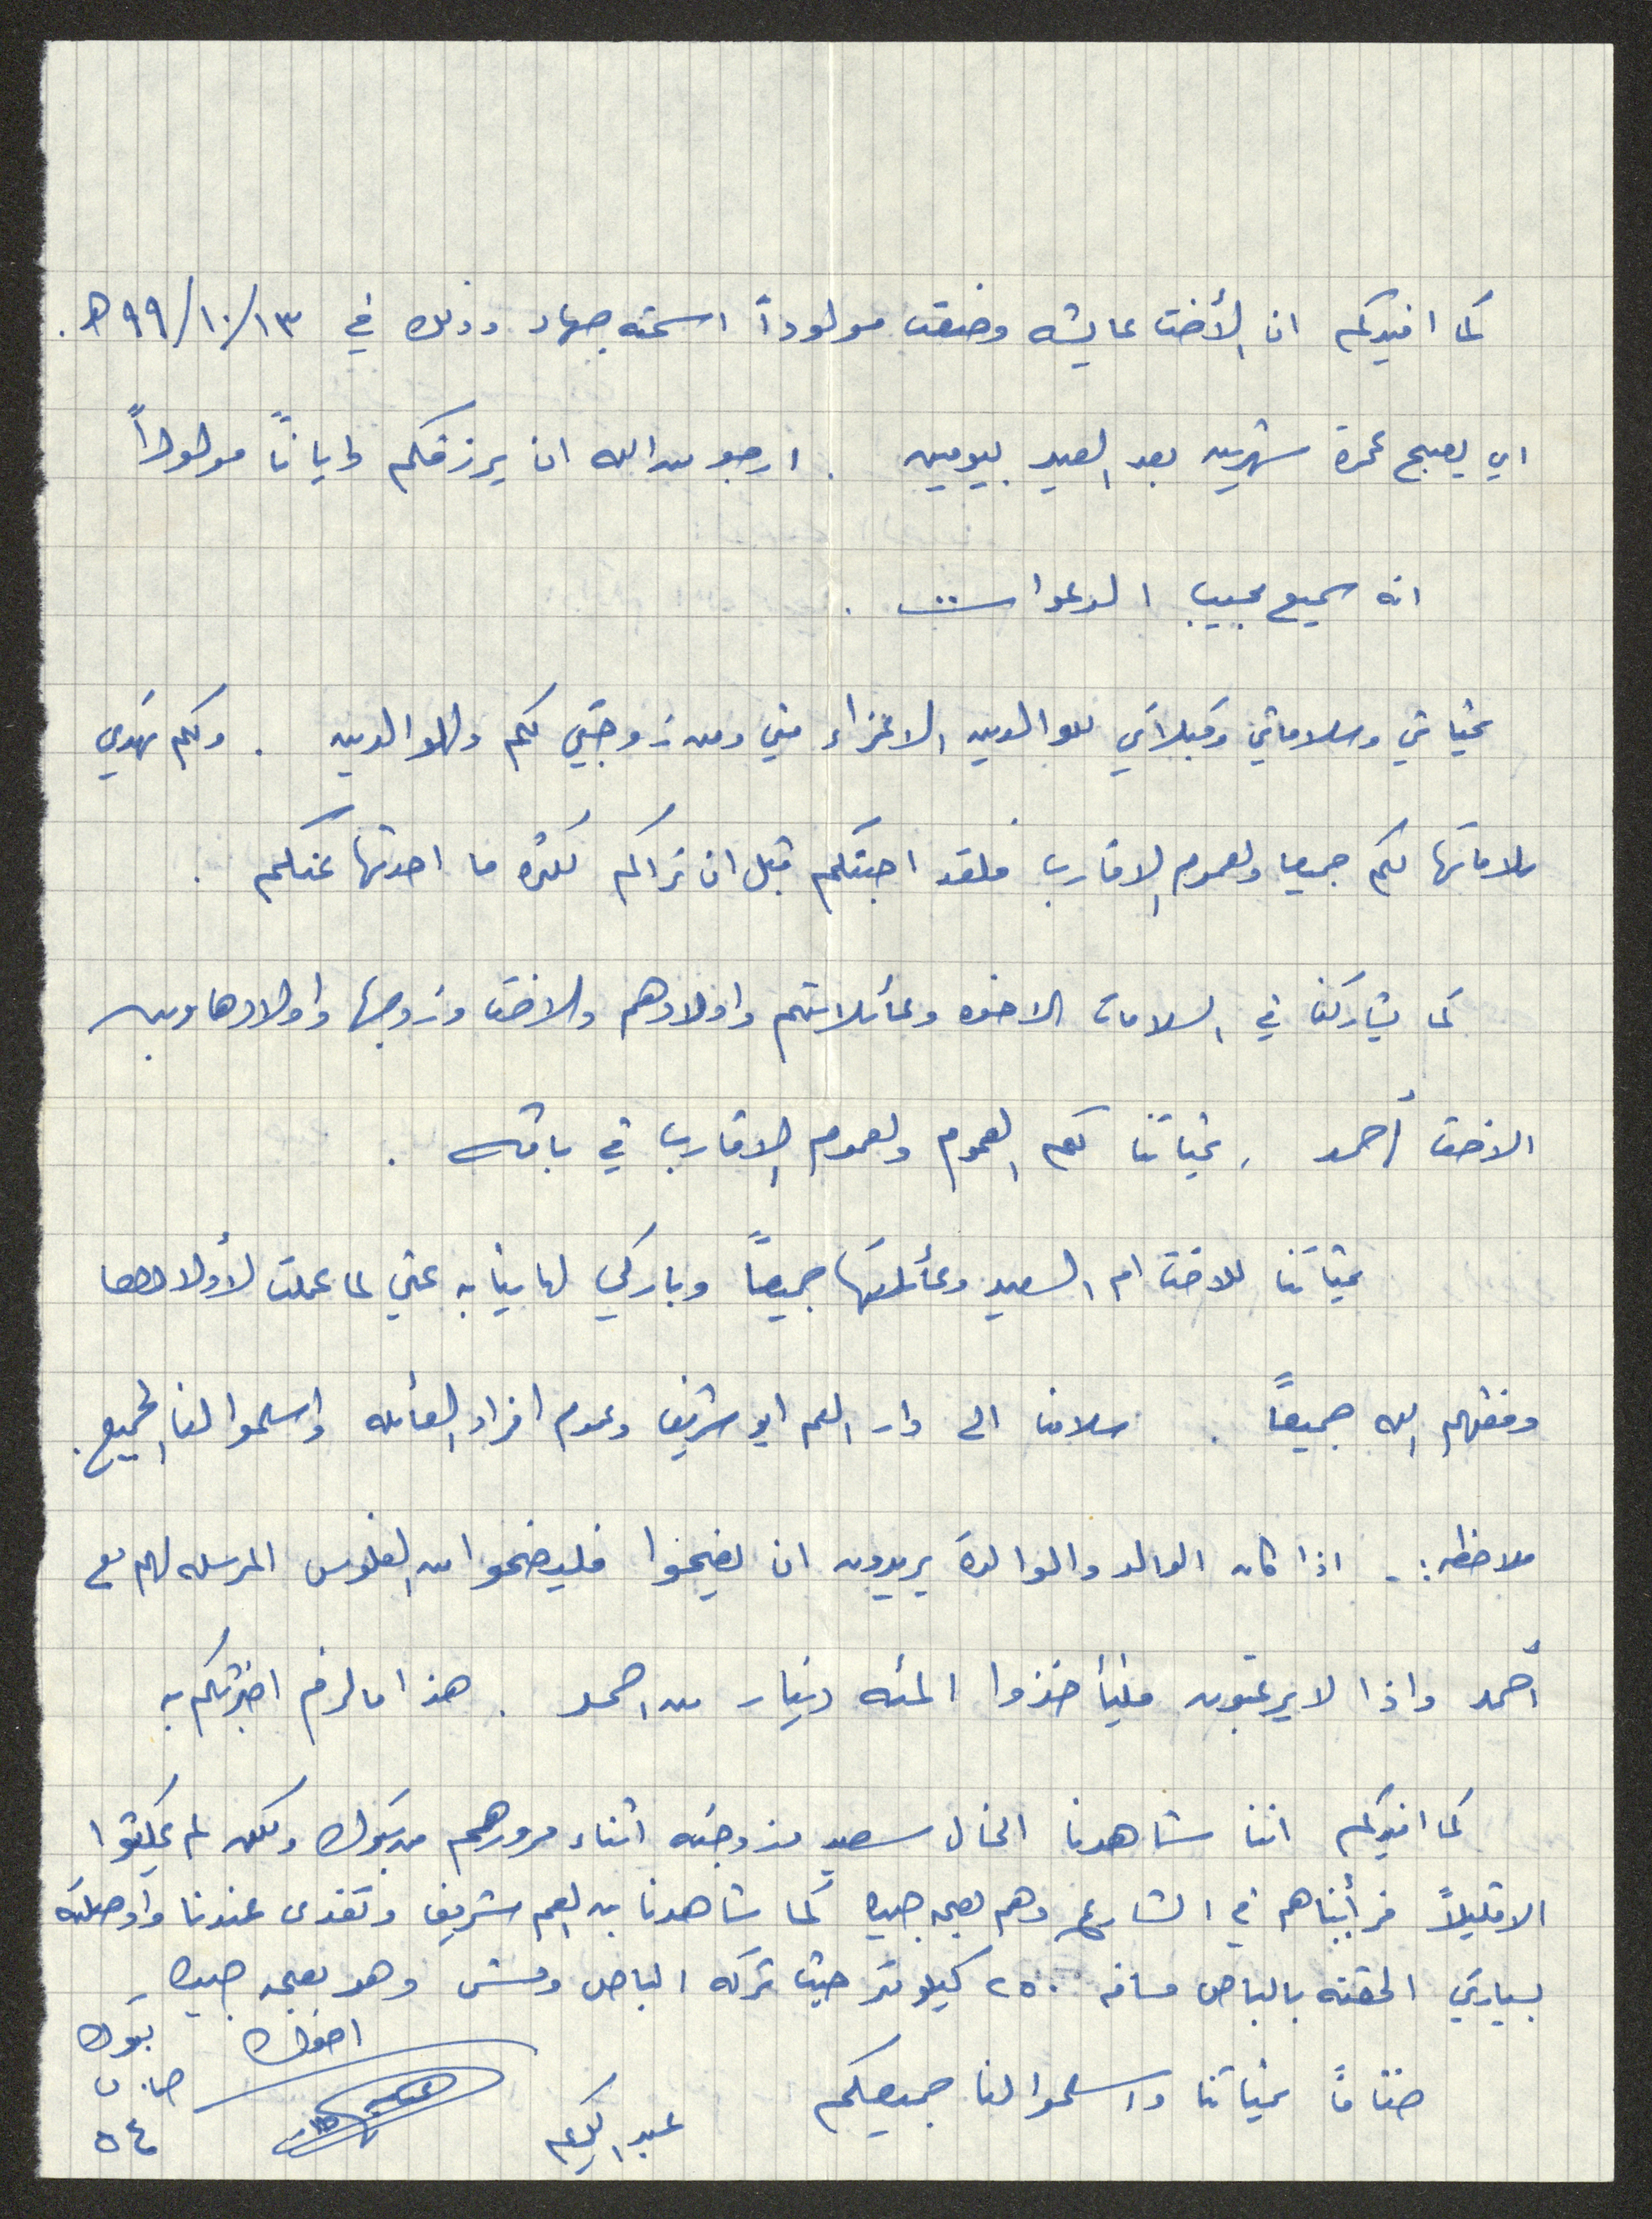 كما افيدكم ان الأخت عايشه وضعت مولوداً اسمته جهاد وذلك في ١٣/١٠/٩٩ هـ.
اي يصبح عمرة شهرين بعد العيد بيومين . ارجو من الله ان يرزقكم وايانا مولوداً
انه سميع مجيب الدعوات .
تحياتي وسلاماتي وقبلاتي للوالدين الاعزاء مني ومن زوجتي لكم وللوالدين . ولكم تهدي
سلاماتها لكم جميعا ولعموم الاقارب فلقد احبتكم قبل ان تراكم لكثره ما احدثها عنكم .
كما يشاركنا في السلامات الاخوه وعائلاتهم واولادهم والاخت وزوجها وأولادها وبيت
الاخت أحمد , تحياتنا لكم العموم ولعموم الاقارب في باقه .
تحياتنا للاخت ام السعيد وعائلتها جميعاً وباركي لها نيابه عني لما عملت لأولادها
وفقهم الله جميعاً . سلامنا الى دار العم ابو شريف وعموم افراد العائله واسلموا لنا الجميع.
ملاحظه :- اذا كان الوالد والوالدة يريدون ان يضحوا فليضحوا من الفلوس المرسله لهم مع
أحمد واذا لا يرغبون فليأخذوا المئه دينار من احمد . هذا ما لزم اخبرتكم به
كما افيدكم اننا شاهدنا الخال سعيد وزوجته اثناء مرورهم من تبوك ولكن لم يمكثوا
الا قليلاً فرأيناهم في الشارع وهم بصحه جيده كما شاهدنا بن العم شريف وتغدى عندنا وأوصلته
بسيارتي الحقته بالباص مسافه ٢٥٠ كيلو متر حيث تركه الباص ومشى وهو بصحه جيده
ختاماً تحياتنا واسلموا لنا جميعكم
اخوك
عبد الكريم
تبوك
ص.ب
٥٤